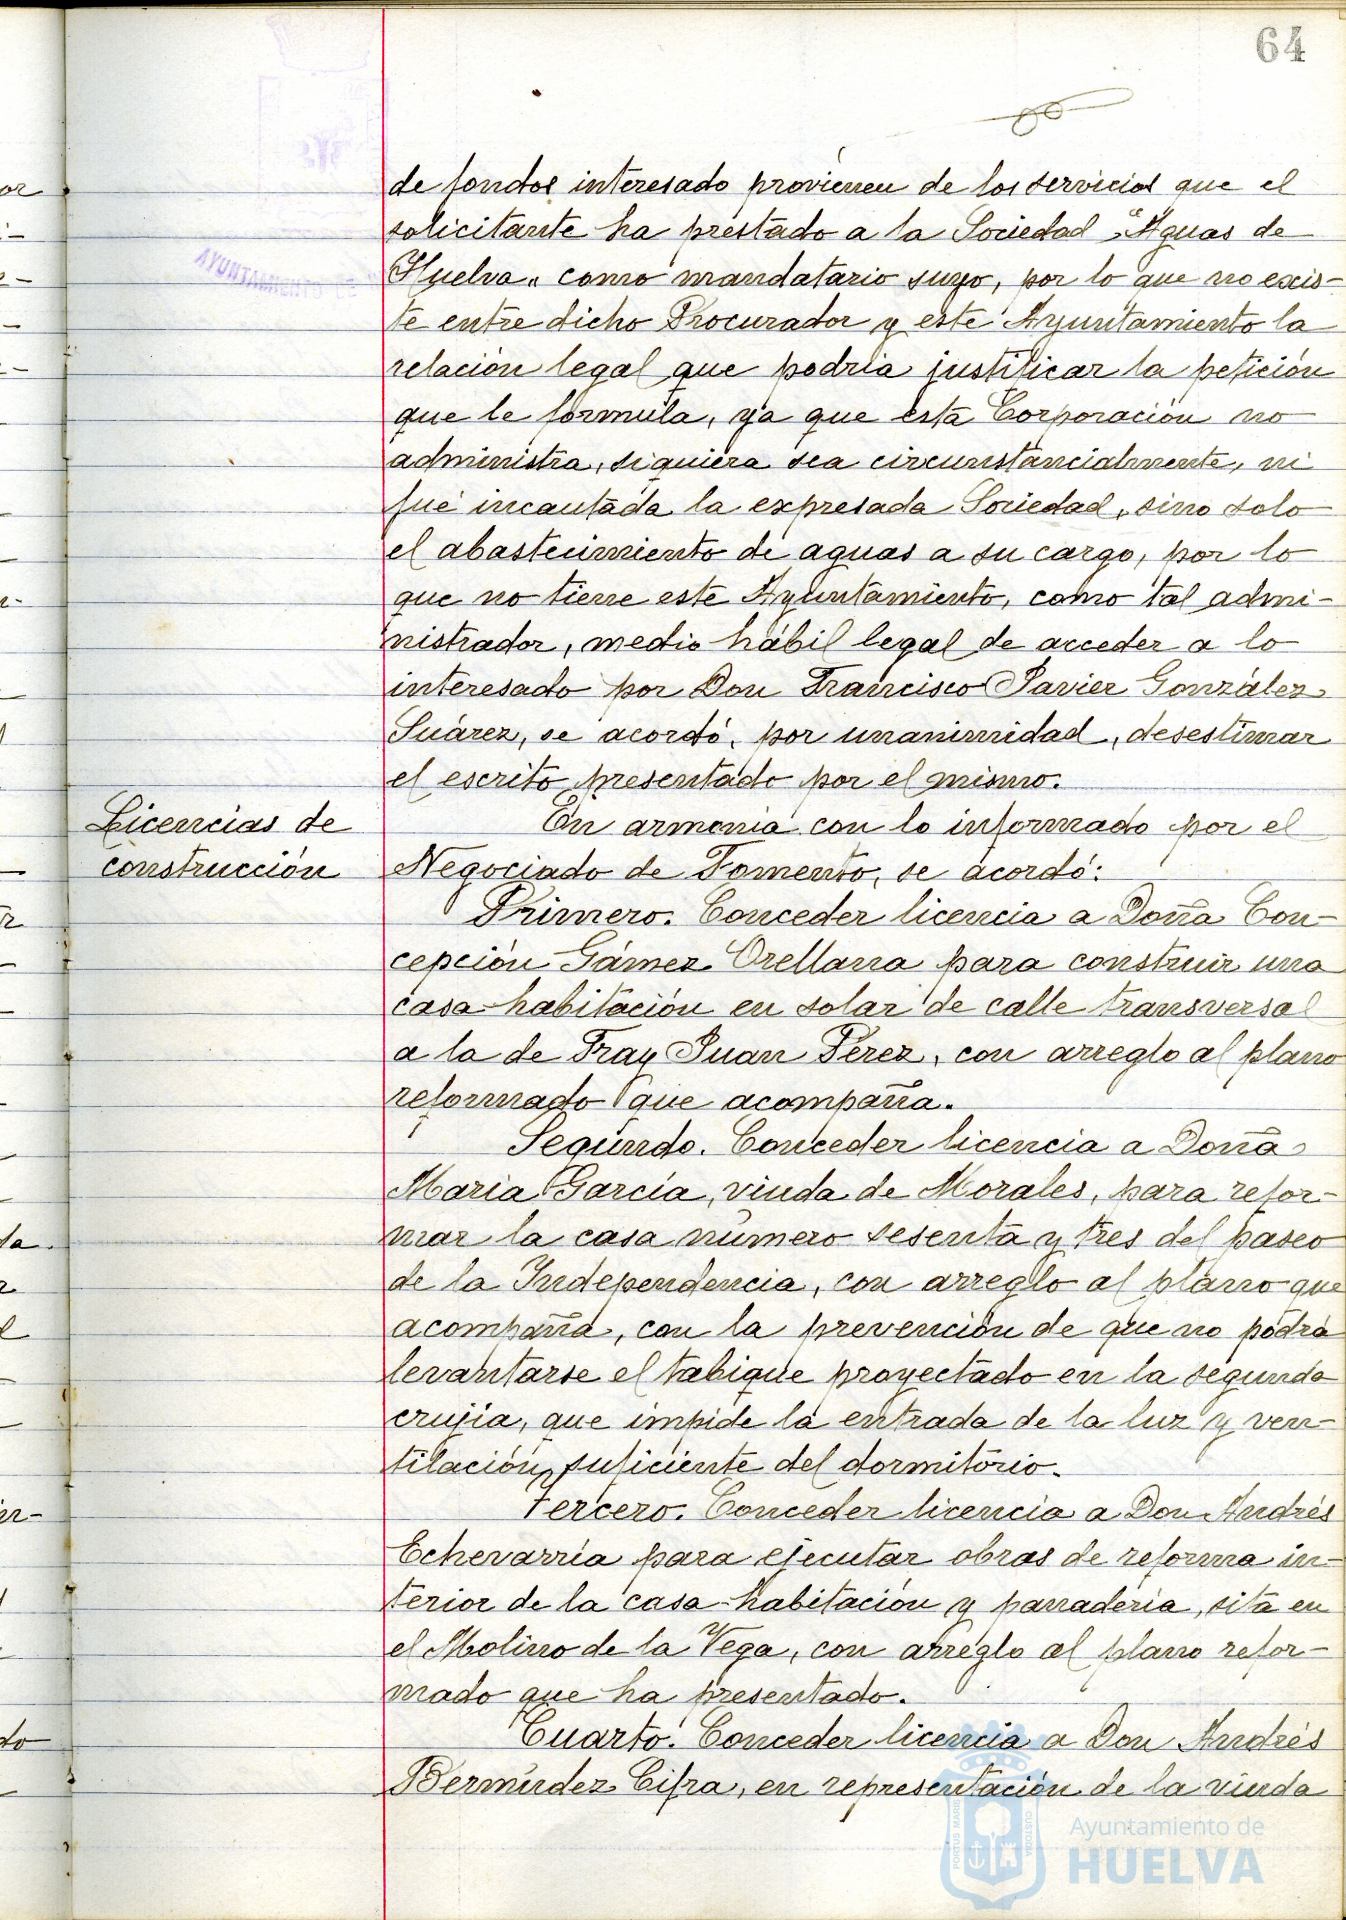 64
de fondos interesado provienen de los servicios que el
solicitante ha prestado a la Sociedad "Aguas de
Huelva" como mandatario suyo, por lo que no exis-
te entre dicho Procurador y este Ayuntamiento la
relación legal que podria justificar la petición
que le formula, ya que esta Corporación no
administra, siquiera sea circunstancialmente, ni
fué incautada la expresada Sociedad, sino solo
el abastecimiento de aguas a su cargo, por lo
que no tiene este Ayuntamiento, como tal admi-
nistrador, medio hábil legal de acceder a lo
interesado por Don Francisco Javier González
Suárez, se acordó, por unanimidad, desestimar
el escrito presentado por el mismo.
Licencias de
construcción
En armonia con lo informado por el
Negociado de Fomento, se acordó:
Primero. Conceder licencia a Doña Con-
cepción Gámez Orellana para construir una
casa-habitación en solar de calle transversal
a la de Fray Juan Pérez, con arreglo al plano
reformado que acompaña.
Segundo. Conceder licencia a Doña
Maria García, viuda de Morales, para refor-
mar la casa número sesenta y tres del paseo
de la Independencia, con arreglo al plano que
acompaña, con la prevención de que no podrá
levantarse el tabique proyectado en la segunda
crujia, que impide la entrada de la luz y ven-
tilación suficiente del dormitorio.
Tercero. Conceder licencia a Don Andrés
Echevarría para ejecutar obras de reforma in-
terior de la casa-habitación y panadería, sita en
el Molino de la Vega, con arreglo al plano refor-
mado que ha presentado.
Cuarto. Conceder licencia a Don Andrés
Bermúdez Cifra, en representación de la viuda
AYUNTAMIENTO DE
PORTUS MARIS
CUSTODIA
Ayuntamiento de
HUELVA